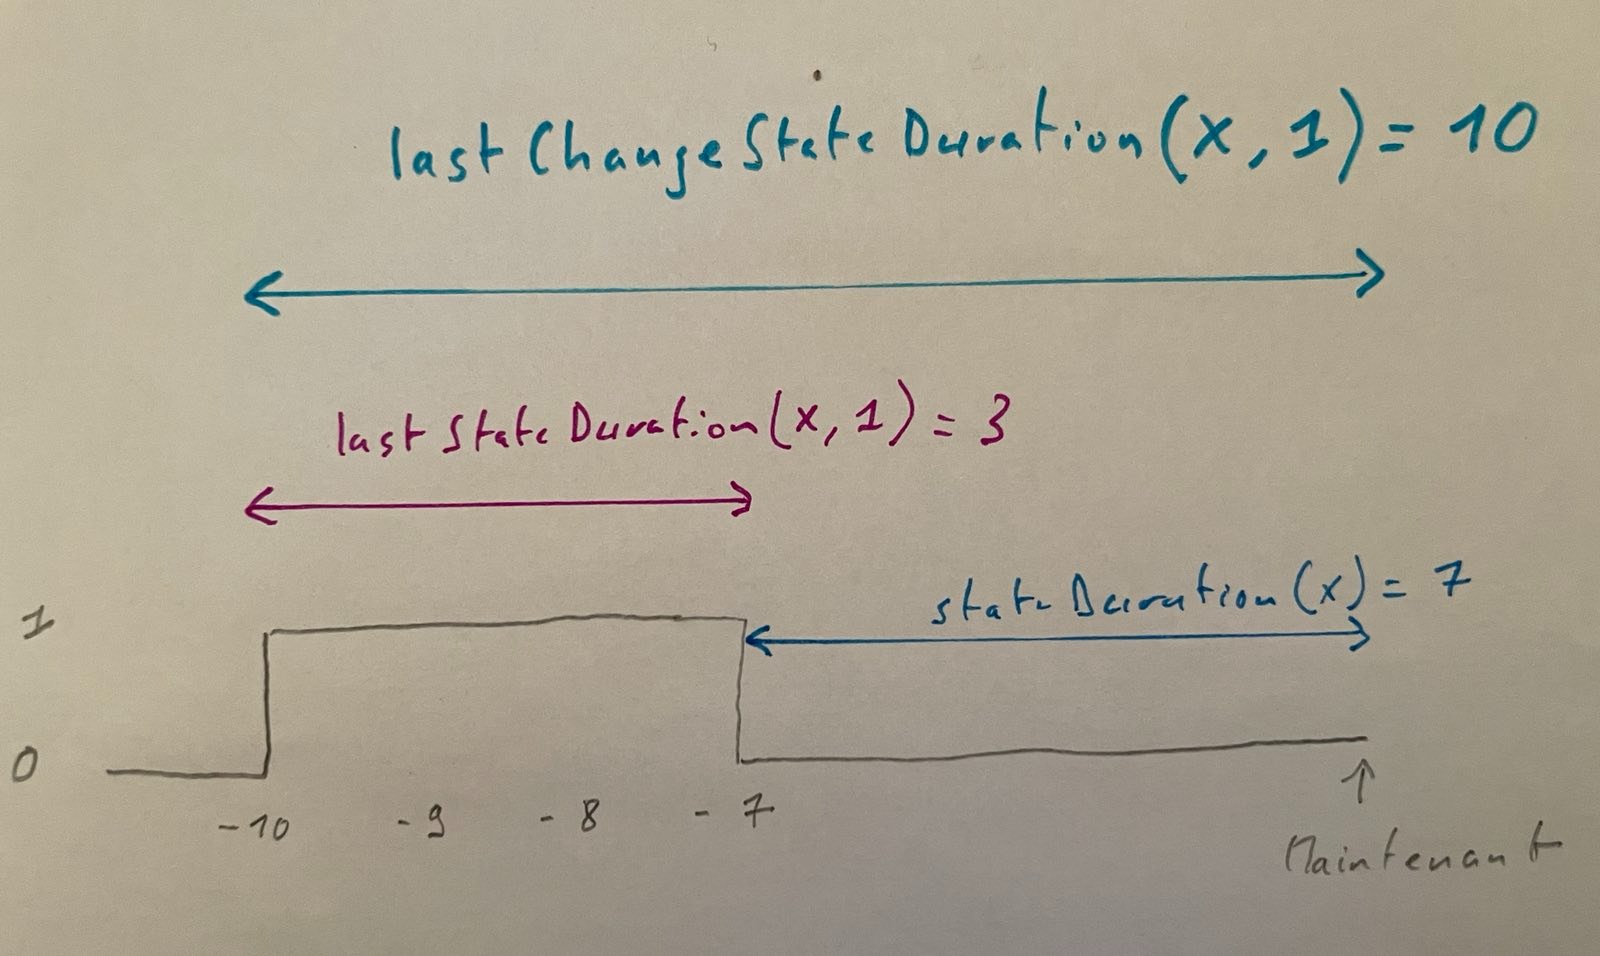 lastChangeStateDuration(x,1)= 10
lastStateDuration(x,1) = 3
stateDuration(x) = 7
1
0
-10 -9 -8 -7
Maintenant